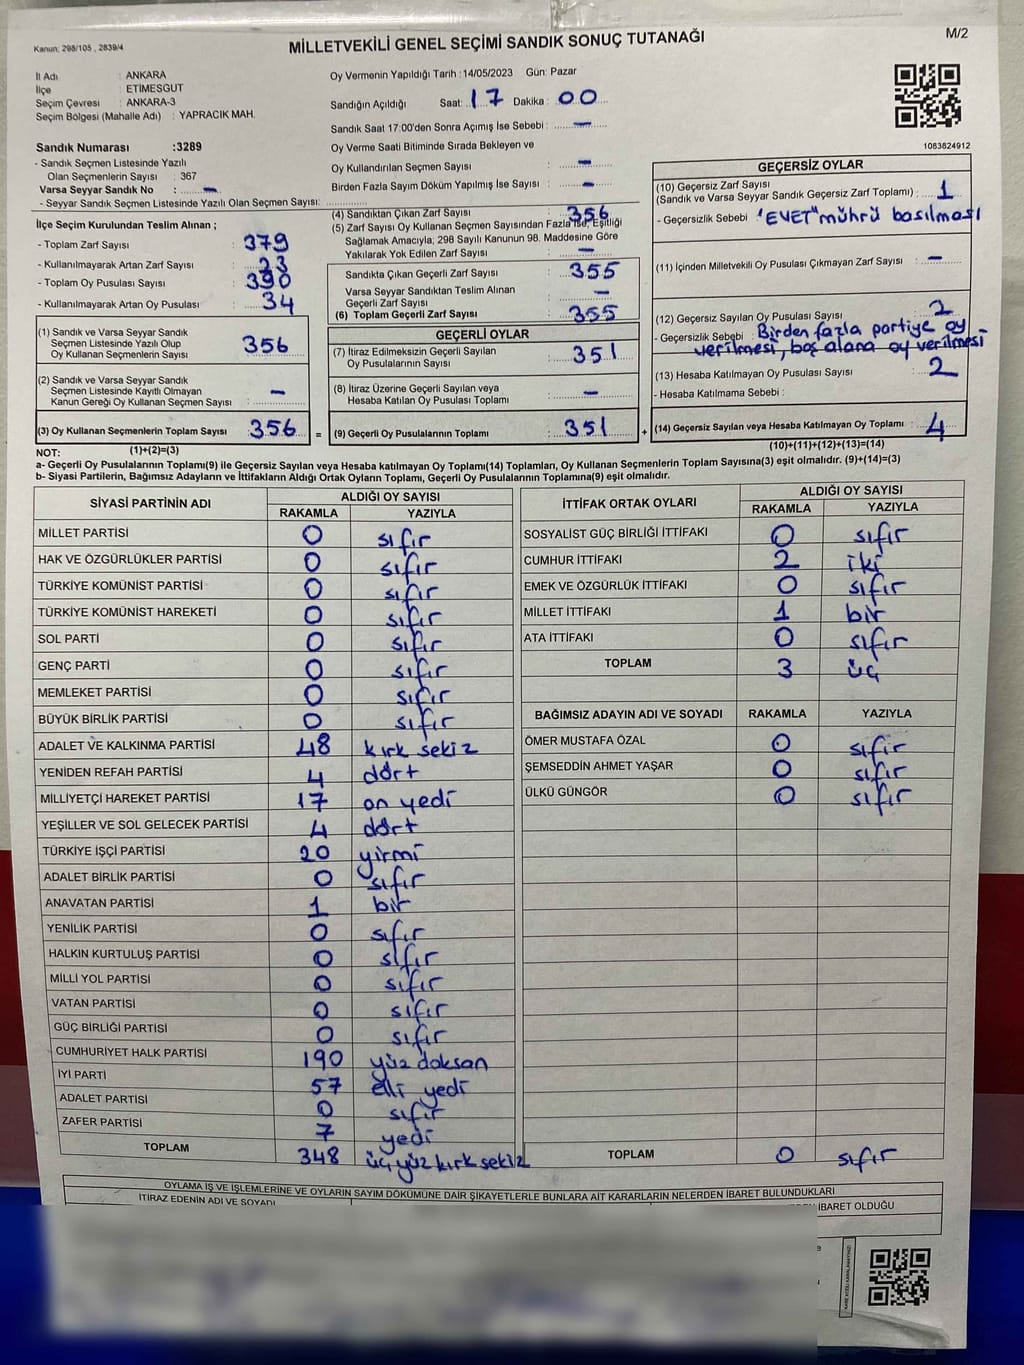 Kanun: 298/105 , 2839/4
MİLLETVEKİLİ GENEL SEÇİMİ SANDIK SONUÇ TUTANAĞI
M/2
İl Adı : ANKARA
İlçe : ETİMESGUT
Seçim Çevresi : ANKARA-3
Seçim Bölgesi (Mahalle Adı) : YAPRACIK MAH.
Sandık Numarası :3289
- Sandık Seçmen Listesinde Yazılı
Olan Seçmenlerin Sayısı : 367
Varsa Seyyar Sandık No : -
- Seyyar Sandık Seçmen Listesinde Yazılı Olan Seçmen Sayısı:
Oy Vermenin Yapıldığı Tarih :14/05/2023 Gün: Pazar
Sandığın Açıldığı Saat: 17 Dakika : 00
Sandık Saat 17:00'den Sonra Açımış İse Sebebi : -
Oy Verme Saati Bitiminde Sırada Bekleyen ve
Oy Kullandırılan Seçmen Sayısı : -
Birden Fazla Sayım Döküm Yapılmış İse Sayısı : -
1083824912
İlçe Seçim Kurulundan Teslim Alınan ;
- Toplam Zarf Sayısı : 379
- Kullanılmayarak Artan Zarf Sayısı : 23
- Toplam Oy Pusulası Sayısı : 390
- Kullanılmayarak Artan Oy Pusulası : 34
(1) Sandık ve Varsa Seyyar Sandık
Seçmen Listesinde Yazılı Olup
Oy Kullanan Seçmenlerin Sayısı : 356
(2) Sandık ve Varsa Seyyar Sandık
Seçmen Listesinde Kayıtlı Olmayan
Kanun Gereği Oy Kullanan Seçmen Sayısı : -
(3) Oy Kullanan Seçmenlerin Toplam Sayısı : 356 =
(1)+(2)=(3)
(4) Sandıktan Çıkan Zarf Sayısı : 356
(5) Zarf Sayısı Oy Kullanan Seçmen Sayısından Fazla İse, Eşitliği
Sağlamak Amacıyla, 298 Sayılı Kanunun 98. Maddesine Göre
Yakılarak Yok Edilen Zarf Sayısı : -
Sandıkta Çıkan Geçerli Zarf Sayısı : 355
Varsa Seyyar Sandıktan Teslim Alınan
Geçerli Zarf Sayısı : -
(6) Toplam Geçerli Zarf Sayısı : 355
GEÇERLİ OYLAR
(7) İtiraz Edilmeksizin Geçerli Sayılan
Oy Pusulalarının Sayısı : 351
(8) İtiraz Üzerine Geçerli Sayılan veya
Hesaba Katılan Oy Pusulası Toplamı : -
(9) Geçerli Oy Pusulalarının Toplamı : 351 +
GEÇERSİZ OYLAR
(10) Geçersiz Zarf Sayısı
(Sandık ve Varsa Seyyar Sandık Geçersiz Zarf Toplamı) : 1
- Geçersizlik Sebebi : "EVET" mührü basılması
(11) İçinden Milletvekili Oy Pusulası Çıkmayan Zarf Sayısı : -
(12) Geçersiz Sayılan Oy Pusulası Sayısı : 2
- Geçersizlik Sebebi : Birden fazla partiye oy
verilmesi, boş alana oy verilmesi
(13) Hesaba Katılmayan Oy Pusulası Sayısı : 2
- Hesaba Katılmama Sebebi :
(14) Geçersiz Sayılan veya Hesaba Katılmayan Oy Toplamı : 4
(10)+(11)+(12)+(13)=(14)
NOT:
a- Geçerli Oy Pusulalarının Toplamı(9) ile Geçersiz Sayılan veya Hesaba katılmayan Oy Toplamı(14) Toplamları, Oy Kullanan Seçmenlerin Toplam Sayısına(3) eşit olmalıdır. (9)+(14)=(3)
b- Siyasi Partilerin, Bağımsız Adayların ve İttifakların Aldığı Ortak Oyların Toplamı, Geçerli Oy Pusulalarının Toplamına(9) eşit olmalıdır.
SİYASİ PARTİNİN ADI ALDIĞI OY SAYISI
RAKAMLA YAZIYLA
MİLLET PARTİSİ 0 sıfır
HAK VE ÖZGÜRLÜKLER PARTİSİ 0 sıfır
TÜRKİYE KOMÜNİST PARTİSİ 0 sıfır
TÜRKİYE KOMÜNİST HAREKETİ 0 sıfır
SOL PARTİ 0 sıfır
GENÇ PARTİ 0 sıfır
MEMLEKET PARTİSİ 0 sıfır
BÜYÜK BİRLİK PARTİSİ 0 sıfır
ADALET VE KALKINMA PARTİSİ 48 kırk sekiz
YENİDEN REFAH PARTİSİ 4 dört
MİLLİYETÇİ HAREKET PARTİSİ 17 on yedi
YEŞİLLER VE SOL GELECEK PARTİSİ 4 dört
TÜRKİYE İŞÇİ PARTİSİ 20 yirmi
ADALET BİRLİK PARTİSİ 0 sıfır
ANAVATAN PARTİSİ 1 bir
YENİLİK PARTİSİ 0 sıfır
HALKIN KURTULUŞ PARTİSİ 0 sıfır
MİLLİ YOL PARTİSİ 0 sıfır
VATAN PARTİSİ 0 sıfır
GÜÇ BİRLİĞİ PARTİSİ 0 sıfır
CUMHURİYET HALK PARTİSİ 190 yüz doksan
İYİ PARTİ 57 elli yedi
ADALET PARTİSİ 0 sıfır
ZAFER PARTİSİ 7 yedi
TOPLAM 348 üç yüz kırk sekiz
İTTİFAK ORTAK OYLARI ALDIĞI OY SAYISI
RAKAMLA YAZIYLA
SOSYALİST GÜÇ BİRLİĞİ İTTİFAKI 0 sıfır
CUMHUR İTTİFAKI 2 iki
EMEK VE ÖZGÜRLÜK İTTİFAKI 0 sıfır
MİLLET İTTİFAKI 1 bir
ATA İTTİFAKI 0 sıfır
TOPLAM 3 üç
BAĞIMSIZ ADAYIN ADI VE SOYADI RAKAMLA YAZIYLA
ÖMER MUSTAFA ÖZAL 0 sıfır
ŞEMSEDDİN AHMET YAŞAR 0 sıfır
ÜLKÜ GÜNGÖR 0 sıfır
TOPLAM 0 sıfır
OYLAMA İŞ VE İŞLEMLERİNE VE OYLARIN SAYIM DÖKÜMÜNE DAİR ŞİKAYETLERLE BUNLARA AİT KARARLARIN NELERDEN İBARET BULUNDUKLARI
İTİRAZ EDENİN ADI VE SOYADI
İBARET OLDUĞU